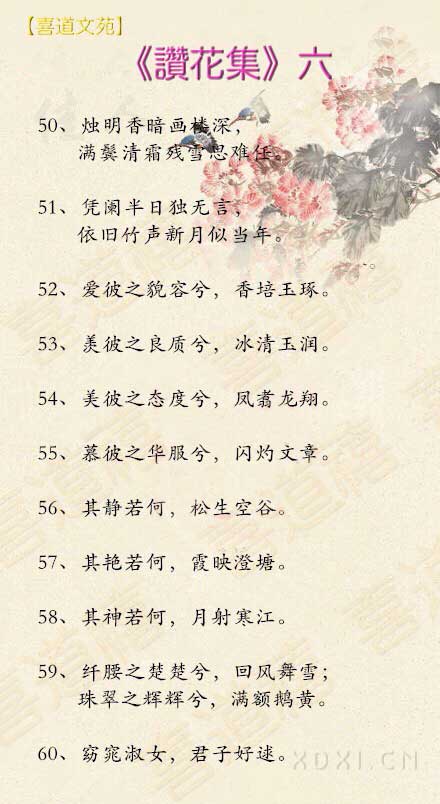 【喜道文苑】
《讚花集》六
50、烛明香暗画楼深，
满鬓清霜残雪思难任。
51、凭阑半日独无言，
依旧竹声新月似当年。
。
52、爱彼之貌容兮，香培玉琢。
53、羡彼之良质兮，冰清玉润。
54、美彼之态度兮，凤翥龙翔。
55、慕彼之华服兮，闪灼文章。
56、其静若何，松生空谷。
57、其艳若何，霞映澄塘。
58、其神若何，月射寒江。
59、纤腰之楚楚兮，回风舞雪；
珠翠之辉辉兮，满额鹅黄。
60、窈窕淑女，君子好逑。
XDXI.CN